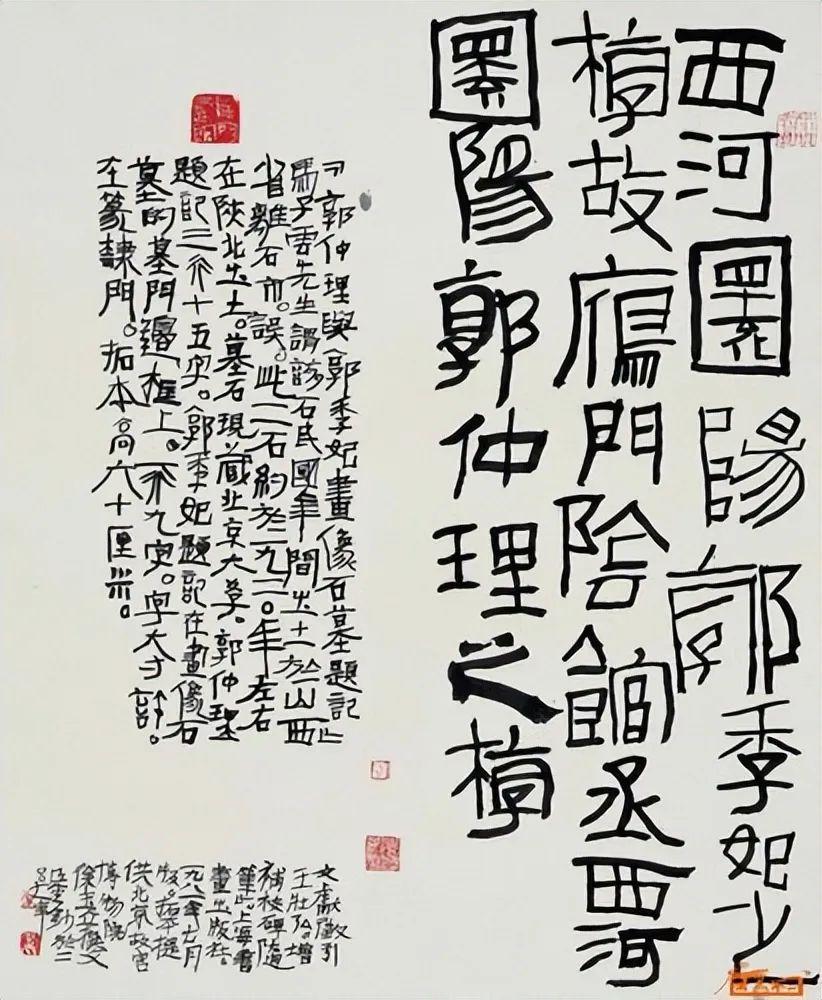 西河圜陽郭季妃之
椁故鴈門陰館丞西河
圜陽郭仲理之椁
郭仲理與郭季妃畫像石墓題記
馬子雲先生謂該石民國年間出土於山西
省離石市。誤。此二石約於一九二〇年左右
在陝北出土。墓石現藏北京大學。郭仲理
題記二行十五字。郭季妃題記在畫像石
墓的墓門邊框上。一行九字。字大寸許。
在篆隸間。拓本高六十厘米。
文獻徵引
王壯弘增
補校碑隨
筆上海書
畫出版社。
一九八一年七月
版。拓本提
供北京故宮
博物院
徐玉立撰文